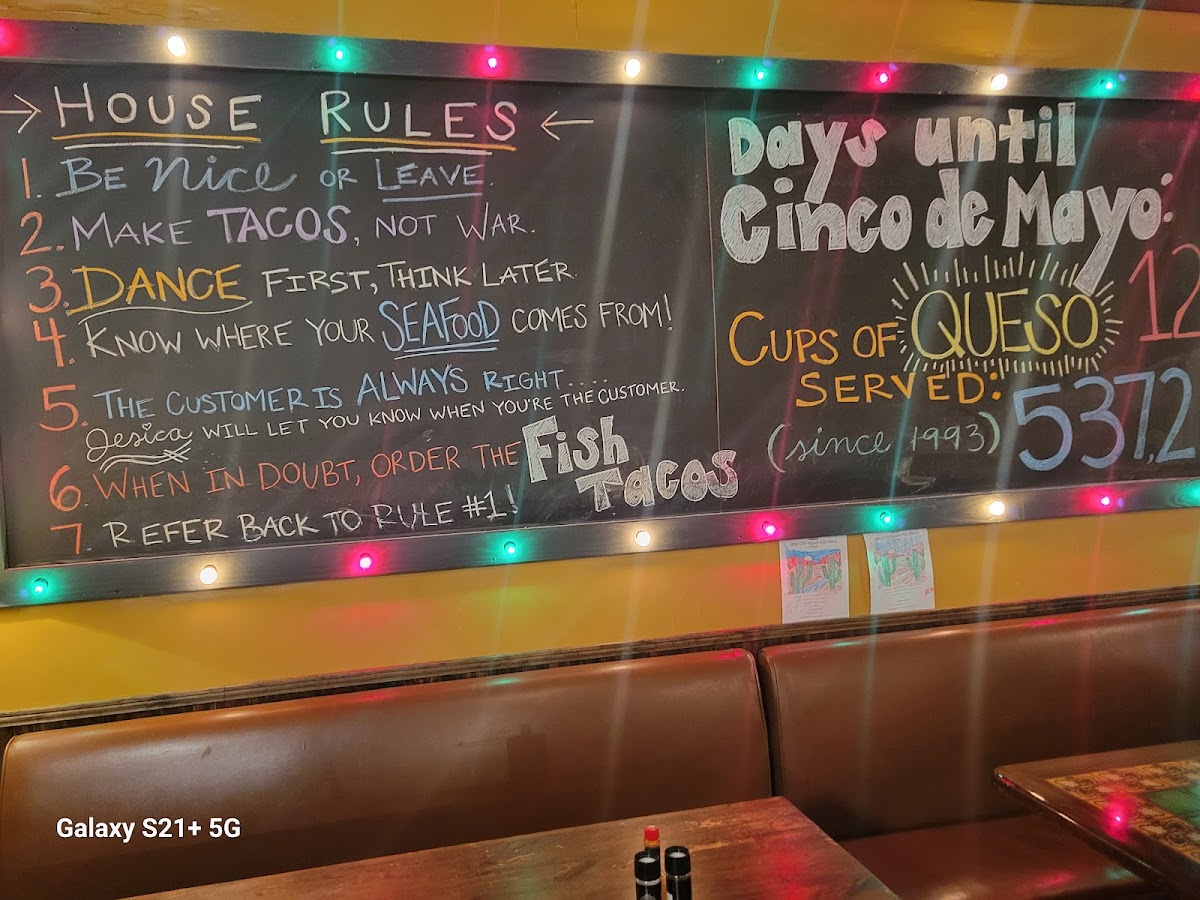 → HOUSE RULES ←
1. BE Nice OR LEAVE.
2. MAKE TACOS, NOT WAR.
3. DANCE FIRST, THINK LATER.
4. KNOW WHERE YOUR SEAFOOD COMES FROM!
5. THE CUSTOMER IS ALWAYS RIGHT....
Jesica WILL LET YOU KNOW WHEN YOU'RE THE CUSTOMER.
6. WHEN IN DOUBT, ORDER THE Fish Tacos
7. REFER BACK TO RULE #1!
Days until
Cinco de Mayo:
12
CUPS OF QUESO
SERVED:
(since 1993) 537,2
Galaxy S21+ 5G